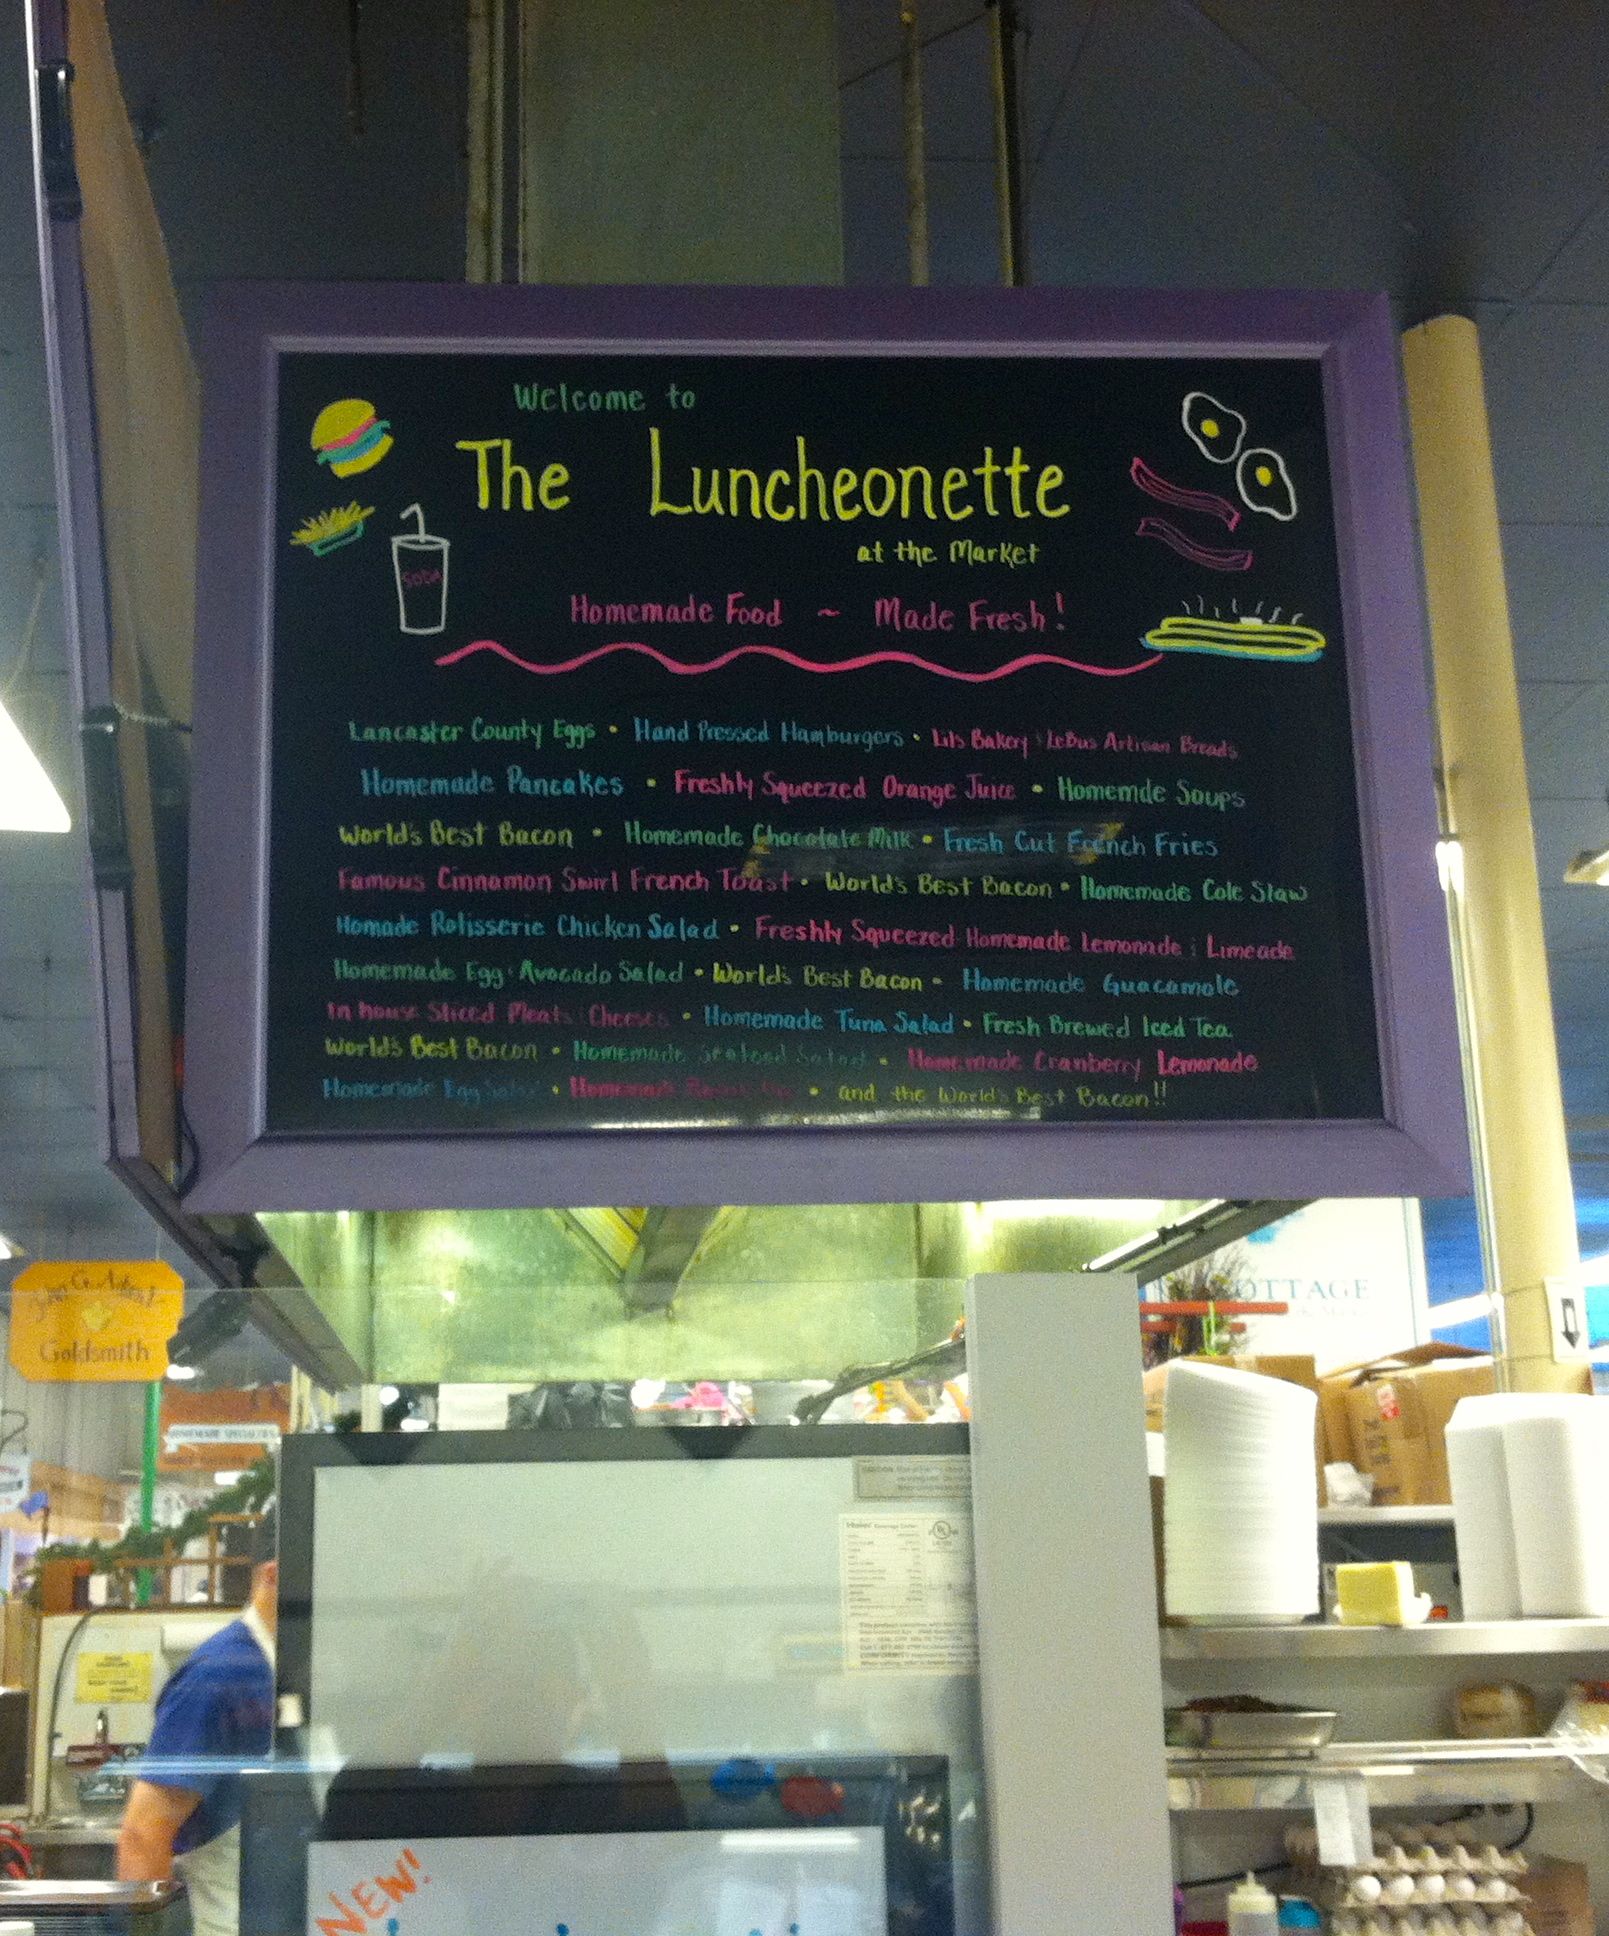 Welcome to
The Luncheonette
at the Market
SODA
Homemade Food ~ Made Fresh!
Lancaster County Eggs • Hand Pressed Hamburgers • Lils Bakery & LeBus Artisan Breads
Homemade Pancakes • Freshly Squeezed Orange Juice • Homemde Soups
World's Best Bacon • Homemade Chocolate Milk • Fresh Cut French Fries
Famous Cinnamon Swirl French Toast • World's Best Bacon • Homemade Cole Slaw
Homade Rotisserie Chicken Salad • Freshly Squeezed Homemade Lemonade & Limeade
Homemade Egg & Avocado Salad • World's Best Bacon • Homemade Guacamole
In house Sliced Meats & Cheeses • Homemade Tuna Salad • Fresh Brewed Iced Tea
World's Best Bacon • Homemade Seafood Salad • Homemade Cranberry Lemonade
Homemade Egg Salad • Homemade • and the World's Best Bacon!!
Goldsmith
COTTAGE
HOMEMADE SPECIALTIES
Haier
NEW!